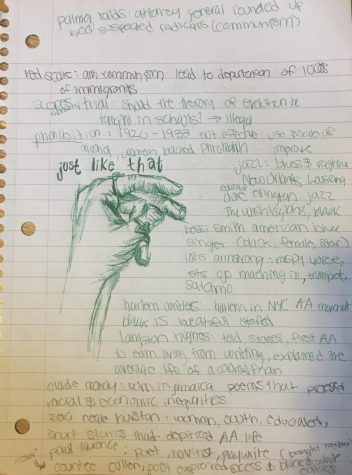 palmer raids: attorney general rounded up
suspected radicals (communism)
red scare: anti communism lead to deportation of 100s
of immigrants
scopes trial: should the theory of evolution be
taught in schools? → illegal
prohibition: 1920-1933 not effective
just like that
improv
jazz: blues & ragtime
New Orleans
duke ellington, jazz
the washingtons, black
bessi smith american blues
singer (black, female, star)
louis armstrong: raspy voice,
sts go marching in, trumpet,
satchmo
harlem writers: harlem in NYC AA movement
black is beautiful started
langston hughes: told stories, first AA
to earn living from writing, explained the
average life of a colored man
claude mckay: born in jamaica poems that
racial & economic inequalities
zora neale hurston: woman, south, educated,
short stories that depicted AA life
paul laurence: poet, novelist, playwrite (brought together
countee cullen, poet expressed